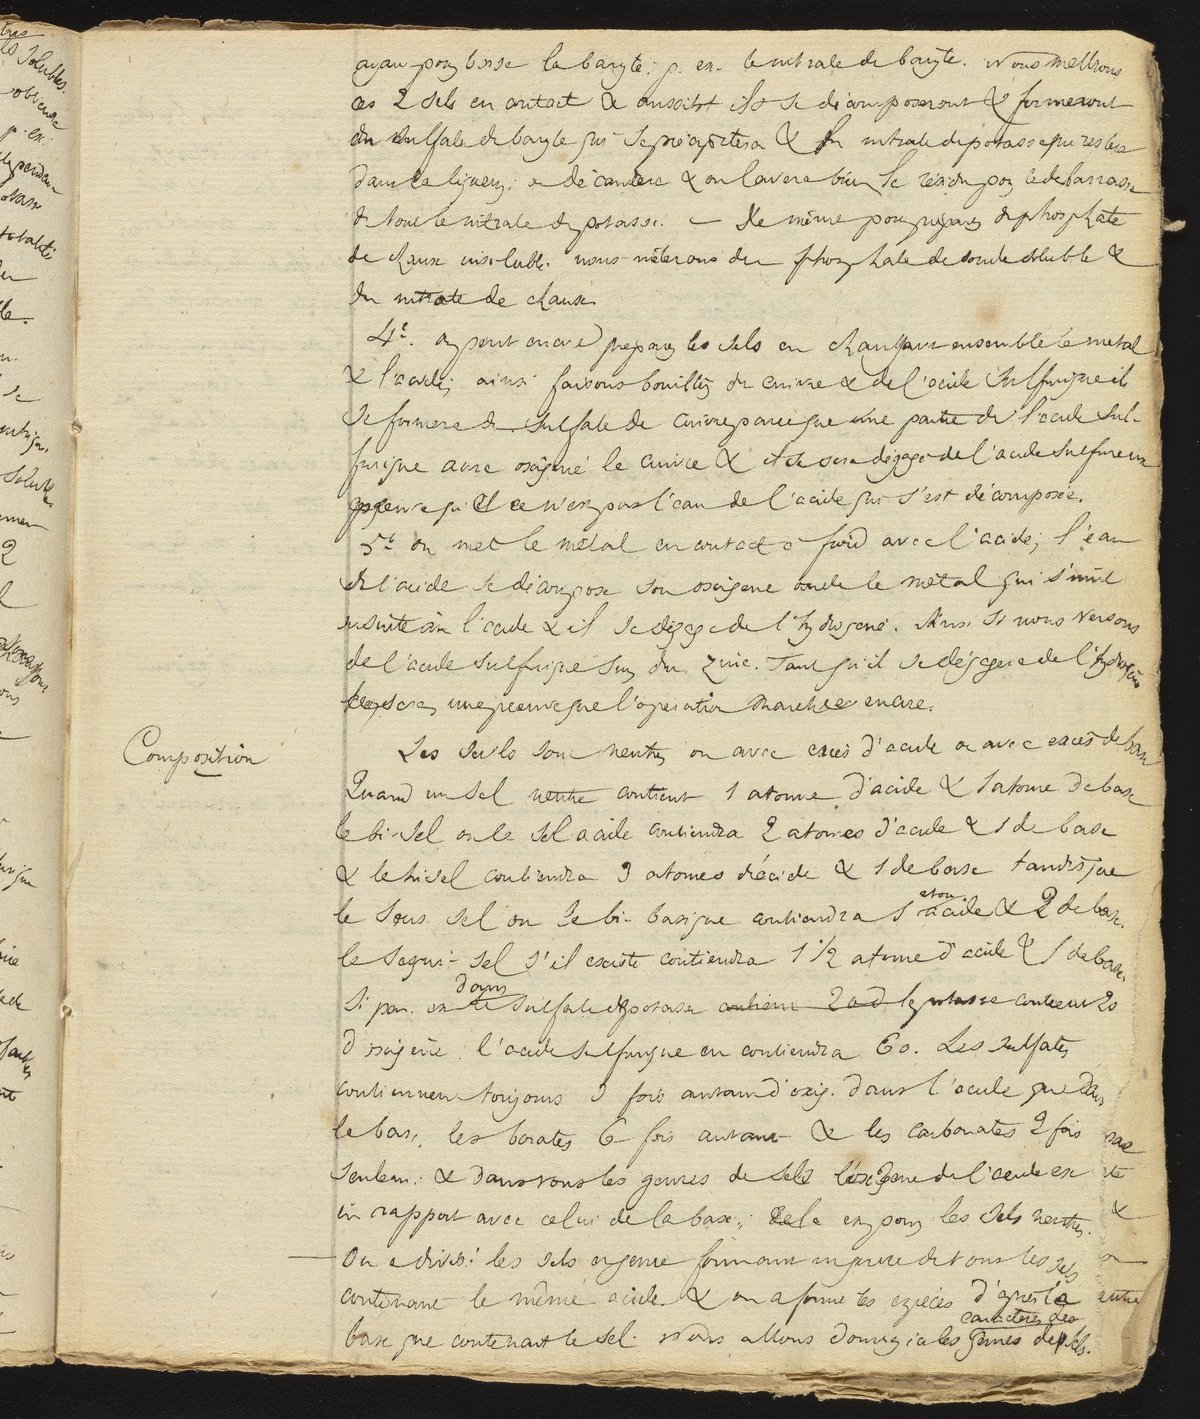 ayant pour base la baryte; p. ex. le nitrate de baryte. Nous mettrons
ces 2 sels en contact & aussitot ils se décomposeront & formeront
du sulfate de baryte qui se précipitera & du nitrate de potasse qui restera
dans la liqueur; on décantera & on lavera bien le résidu pour le débarrasser
de tout le nitrate de potasse. — De même pour préparer du phosphate
de chaux insoluble nous mêlerons du phosphate de soude soluble &
du nitrate de chaux.
4º. on peut encore preparer les sels en chauffant ensemble le metal
& l'acide; ainsi faisons bouillir du cuivre & de l'acide sulfurique il
se formera du sulfate de cuivre parceque une partie de l'acide sul-
furique aura oxigéné le cuivre & il se sera dégagé de l'acide sulfureux
preuve que ce n'est pas l'eau de l'acide qui s'est décomposée.
5º on met le métal en contact à froid avec l'acide; l'eau
de l'acide se décompose son oxigene oxide le métal qui s'unit
ensuite à l'acide & il se dégage de l'hydrogene. Ainsi si nous versons
de l'acide sulfurique sur du zinc. Tant qu'il se dégagera de l'hydrogène
ce sera une preuve que l'opération marche encore.
Composition
Les sels sont neutres ou avec excès d'acide ou avec excès de base
Quand un sel neutre contient 1 atome d'acide & 1 atome de base
le bi-sel ou le sel acide contiendra 2 atomes d'acide & 1 de base
& le trisel contiendra 3 atomes d'acide & 1 de base tandisque
le sous-sel ou le bi-basique contiendra 1 atom acide & 2 de base.
le sesqui-sel s'il existe contiendra 1 1/2 atome d'acide & 1 de base.
Si par ex dans le sulfate de potasse contient 2 o d la potasse contient 2 o
d'oxigène, l'acide sulfurique en contiendra 6 o. Les sulfates
contiennent toujours 3 fois autant d'oxig. dans l'acide que dans
la base, les borates 6 fois autant & les carbonates 2 fois
seulem. & dans tous les genres de sels l'oxigene de l'acide est
en rapport avec celui de la base; cela est pour les sels neutres.
— On a divisé les sels en genre formant un genre de tous les sels
contenant le même acide & on a formé les espèces d'après la
base que contenait le sel. Nous allons donner ici les caracteres des genres de sels.